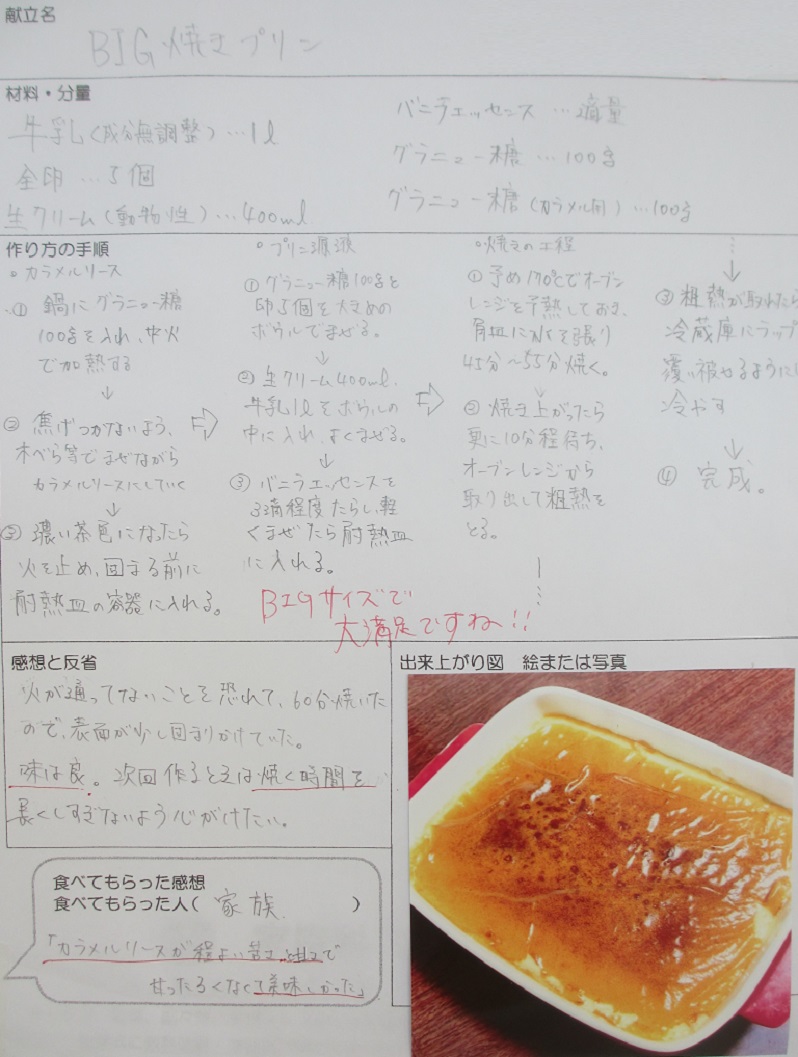 献立名
BIG焼きプリン
材料・分量
牛乳(成分無調整)…1ℓ
全卵…5個
生クリーム(動物性)…400ml
バニラエッセンス…適量
グラニュー糖…100g
グラニュー糖(カラメル用)…100g
作り方の手順
○カラメルソース
① 鍋にグラニュー糖
100gを入れ、中火
で加熱する
↓
② 焦げつかないよう、
木べら等でまぜながら
カラメルソースにしていく
↓
③ 濃い茶色になったら
火を止め、固まる前に
耐熱皿の容器に入れる。
⇨
○プリン源液
①グラニュー糖100gと
卵5個を大きめの
ボウルでまぜる。
↓
②生クリーム400ml、
牛乳1ℓをボウルの
中に入れ、よくまぜる。
↓
③ バニラエッセンスを
3滴程度たらし、軽
くまぜたら耐熱皿
に入れる。
⇨
○焼きの工程
①予め170℃でオーブン
レンジを予熱しておき、
角皿に水を張り
45分〜55分焼く。
↓
② 焼き上がったら
更に10分程待ち、
オーブンレンジから
取り出して粗熱を
とる。
↓
③ 粗熱が取れたら
冷蔵庫にラップ
覆い被せるように
冷やす
↓
④ 完成。
BIGサイズで
大満足ですね!!
感想と反省
火が通ってないことを恐れて、60分焼いた
ので、表面が少し固まりかけていた。
味は良。次回作るときは焼く時間を
長くしすぎないよう心がけたい。
出来上がり図 絵または写真
食べてもらった感想
食べてもらった人( 家族 )
「カラメルソースが程よい苦さ 甘さで
甘ったるくなくて美味しかった」